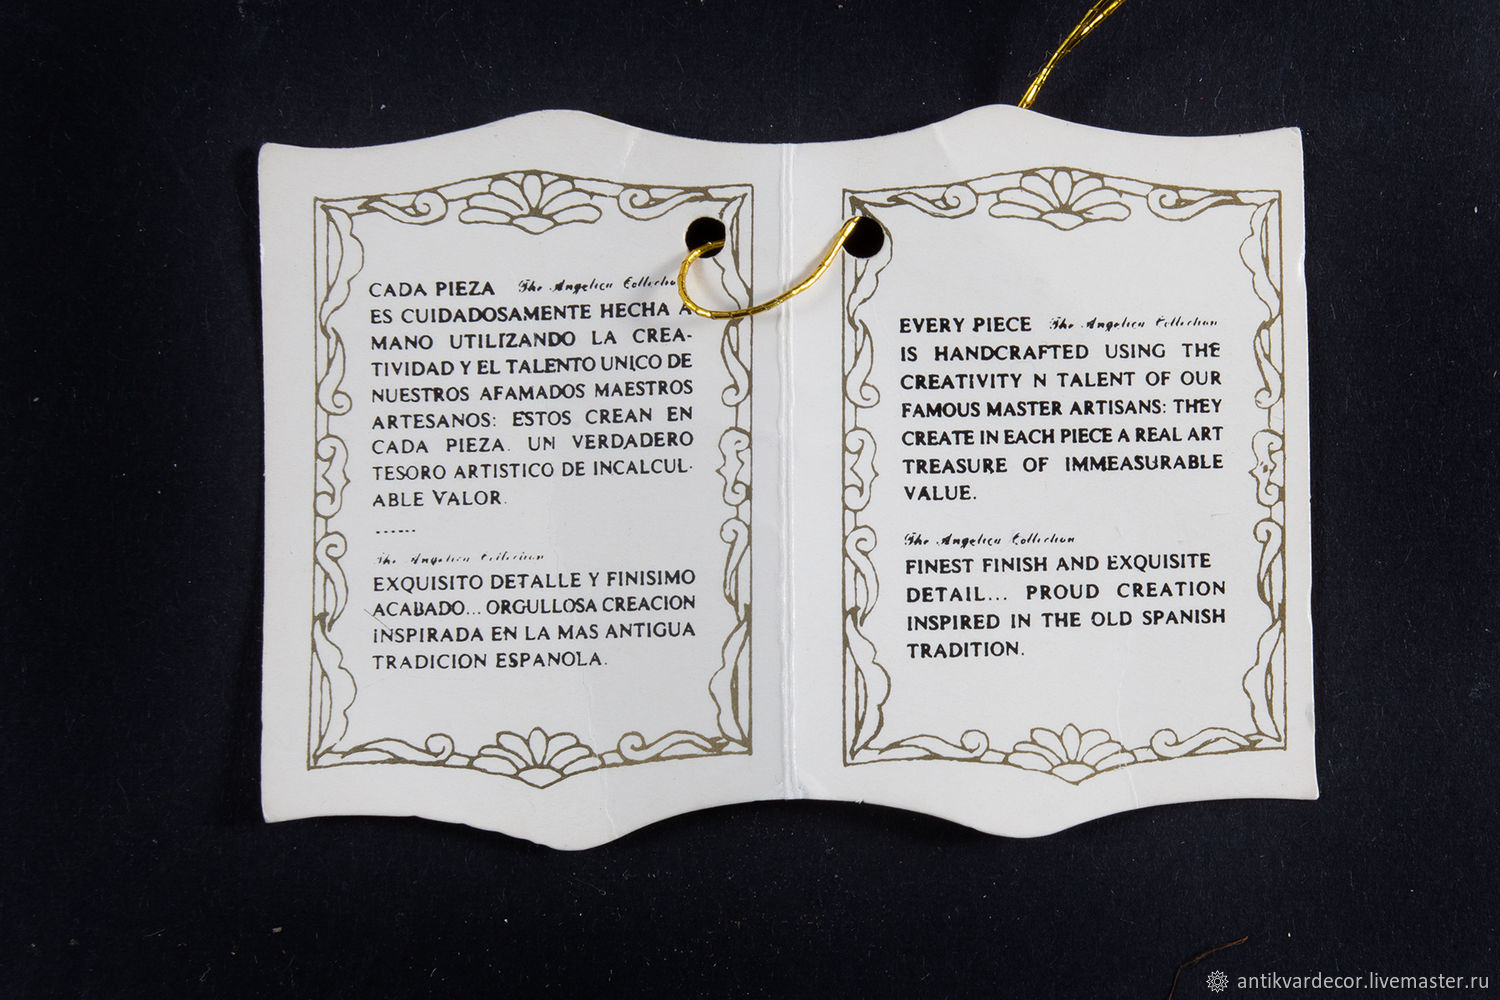 CADA PIEZA The Angelica Collection
ES CUIDADOSAMENTE HECHA A
MANO UTILIZANDO LA CREA-
TIVIDAD Y EL TALENTO UNICO DE
NUESTROS AFAMADOS MAESTROS
ARTESANOS: ESTOS CREAN EN
CADA PIEZA. UN VERDADERO
TESORO ARTISTICO DE INCALCUL-
ABLE VALOR.
......
The Angelica Collection
EXQUISITO DETALLE Y FINISIMO
ACABADO... ORGULLOSA CREACION
INSPIRADA EN LA MAS ANTIGUA
TRADICION ESPANOLA.
EVERY PIECE The Angelica Collection
IS HANDCRAFTED USING THE
CREATIVITY N TALENT OF OUR
FAMOUS MASTER ARTISANS: THEY
CREATE IN EACH PIECE A REAL ART
TREASURE OF IMMEASURABLE
VALUE.
The Angelica Collection
FINEST FINISH AND EXQUISITE
DETAIL... PROUD CREATION
INSPIRED IN THE OLD SPANISH
TRADITION.
antikvardecor.livemaster.ru